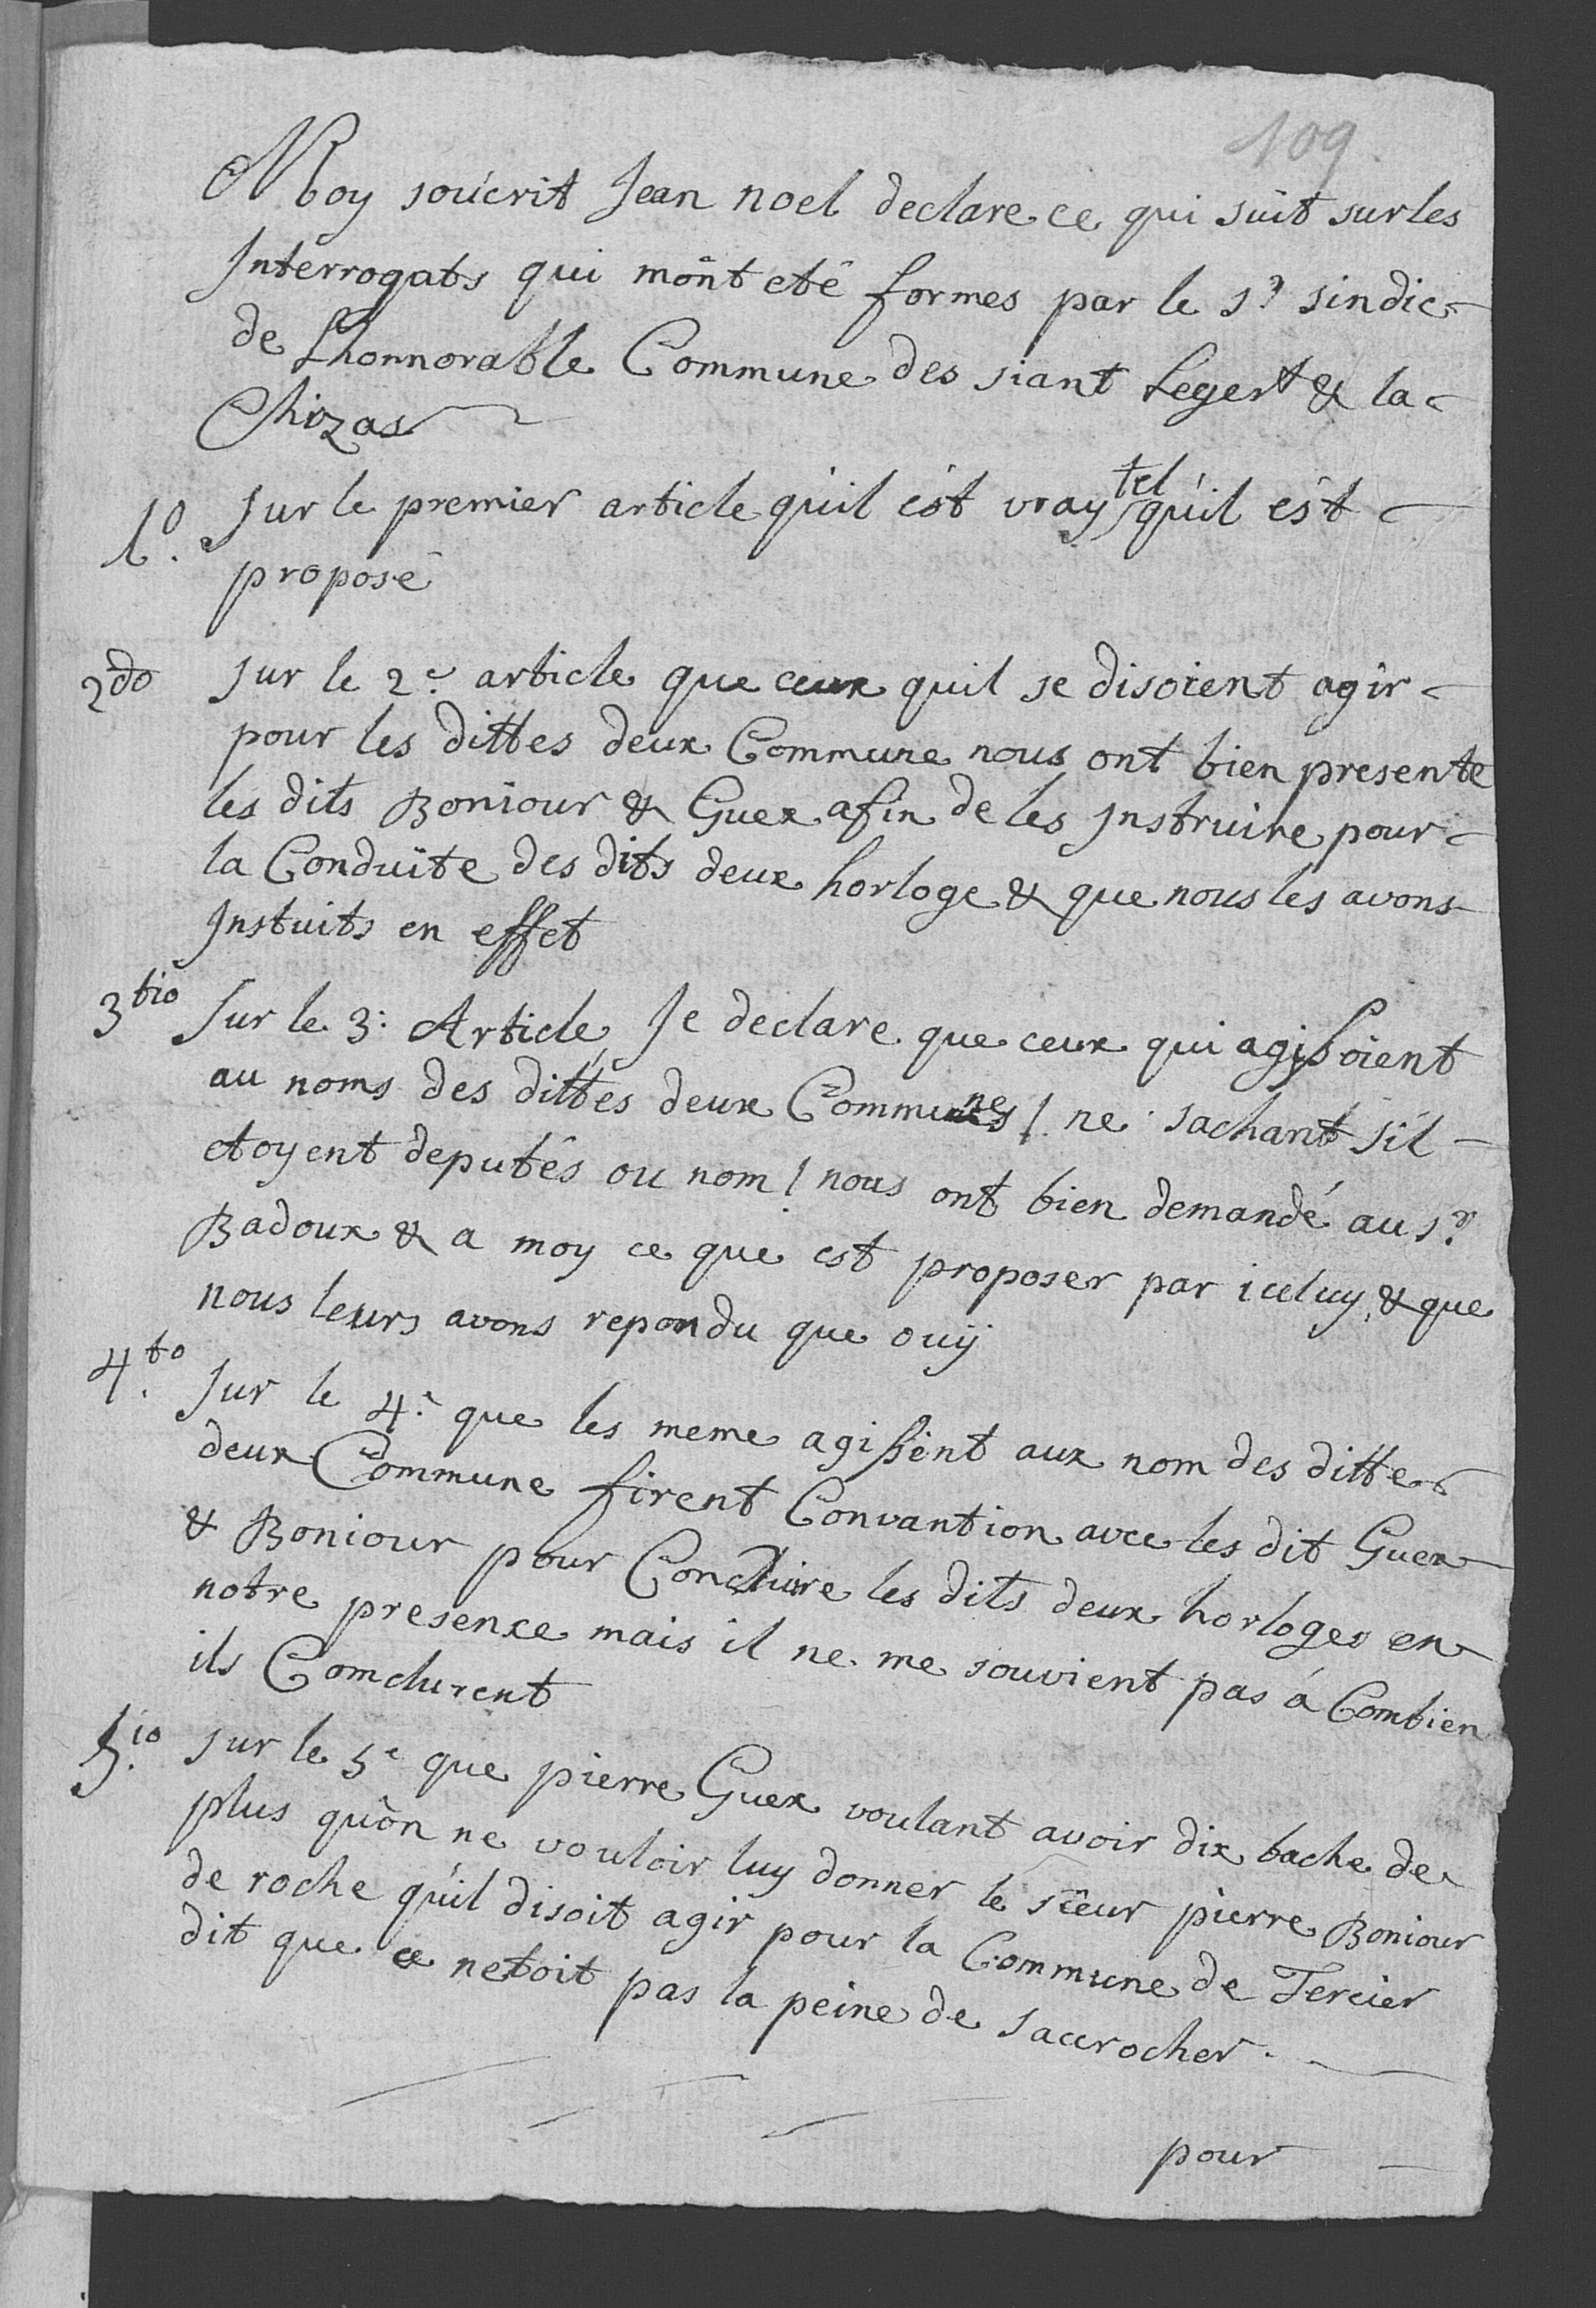 109
Moy soucrit Jean noel declare ce qui suit sur les
Interrogats qui mônt etê formes par le Sr sindic
de Lhonnorable Commune des siant Legert & la
Chizas
1o. Sur le premier article qu'il ést vray tel qu'il ést
proposé
2do Sur le 2e article que ceux quil se disoient agir
pour les dittes deux Commune nous ont bien presente
les dits Boniour & Guex afin de les Instruire pour
la Conduite des dits deux horloge & que nous les avons
Instuits en effet
3tio Sur le 3e Article Je declare que ceux qui agissoient
au noms des dittes deux Communes /. ne sachant s'il
etoyent deputés ou nom /. nous ont bien demandé au Sr
Badoux & a moy ce que est proposer par iceluy, & que
nous leurs avons repondu que ouÿ
4to. Sur le 4e que les meme agissent aux nom des dittes
deux Commune firent Convantion avec les dit Guex
& Boniour pour Conduire les dits deux horloges en
notre presence mais il ne me souvient pas á Combien
ils Comclurent
5io. Sur le 5e que pierre Guex voulant avoir dix bache de
plus qu'on ne vouloir luy donner le sieur pierre Boniour
de roche qu'il disoit agir pour la Commune de Tercier
dit que ce netoit pas la peine de saccrocher.
pour